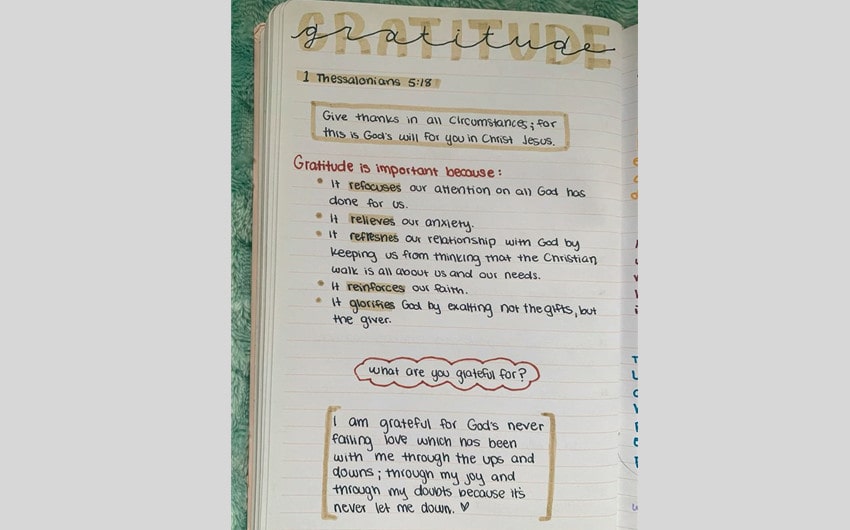 GRATITUDE
gratitude
1 Thessalonians 5:18
Give thanks in all circumstances; for
this is God's will for you in Christ Jesus.
Gratitude is important because:
• It refocuses our attention on all God has
done for us.
• It relieves our anxiety.
• It refreshes our relationship with God by
keeping us from thinking that the Christian
walk is all about us and our needs.
• It reinforces our faith.
• It glorifies God by exalting not the gifts, but
the giver.
what are you grateful for?
I am grateful for God's never
failing love which has been
with me through the ups and
downs; through my joy and
through my doubts because it's
never let me down. ♡